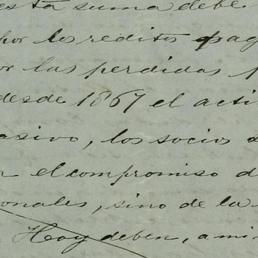 esta suma debe
por los reditos pag
or las perdidas p
desde 1867 el acti
asivo, los socios
el compromiso d
onales, sino de la
Hoy deben, a mi